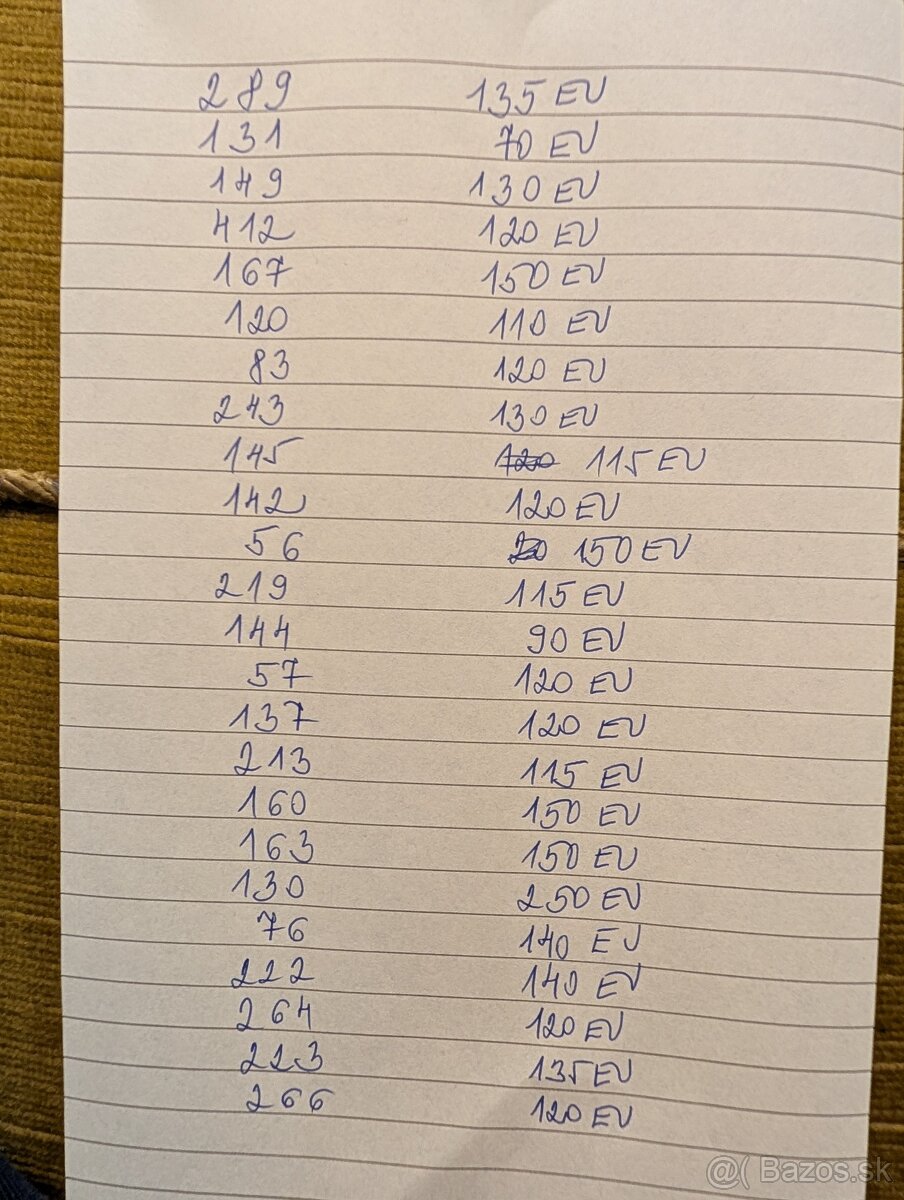 289 135 EU
131 70 EU
149 130 EU
412 120 EU
167 150 EU
120 110 EU
83 120 EU
243 130 EU
145 120 115 EU
142 120 EU
56 150 EU
219 115 EU
144 90 EU
57 120 EU
137 120 EU
213 115 EU
160 150 EU
163 150 EU
130 250 EU
76 140 EU
222 140 EU
264 120 EU
223 135 EU
266 120 EU
@( Bazos.sk